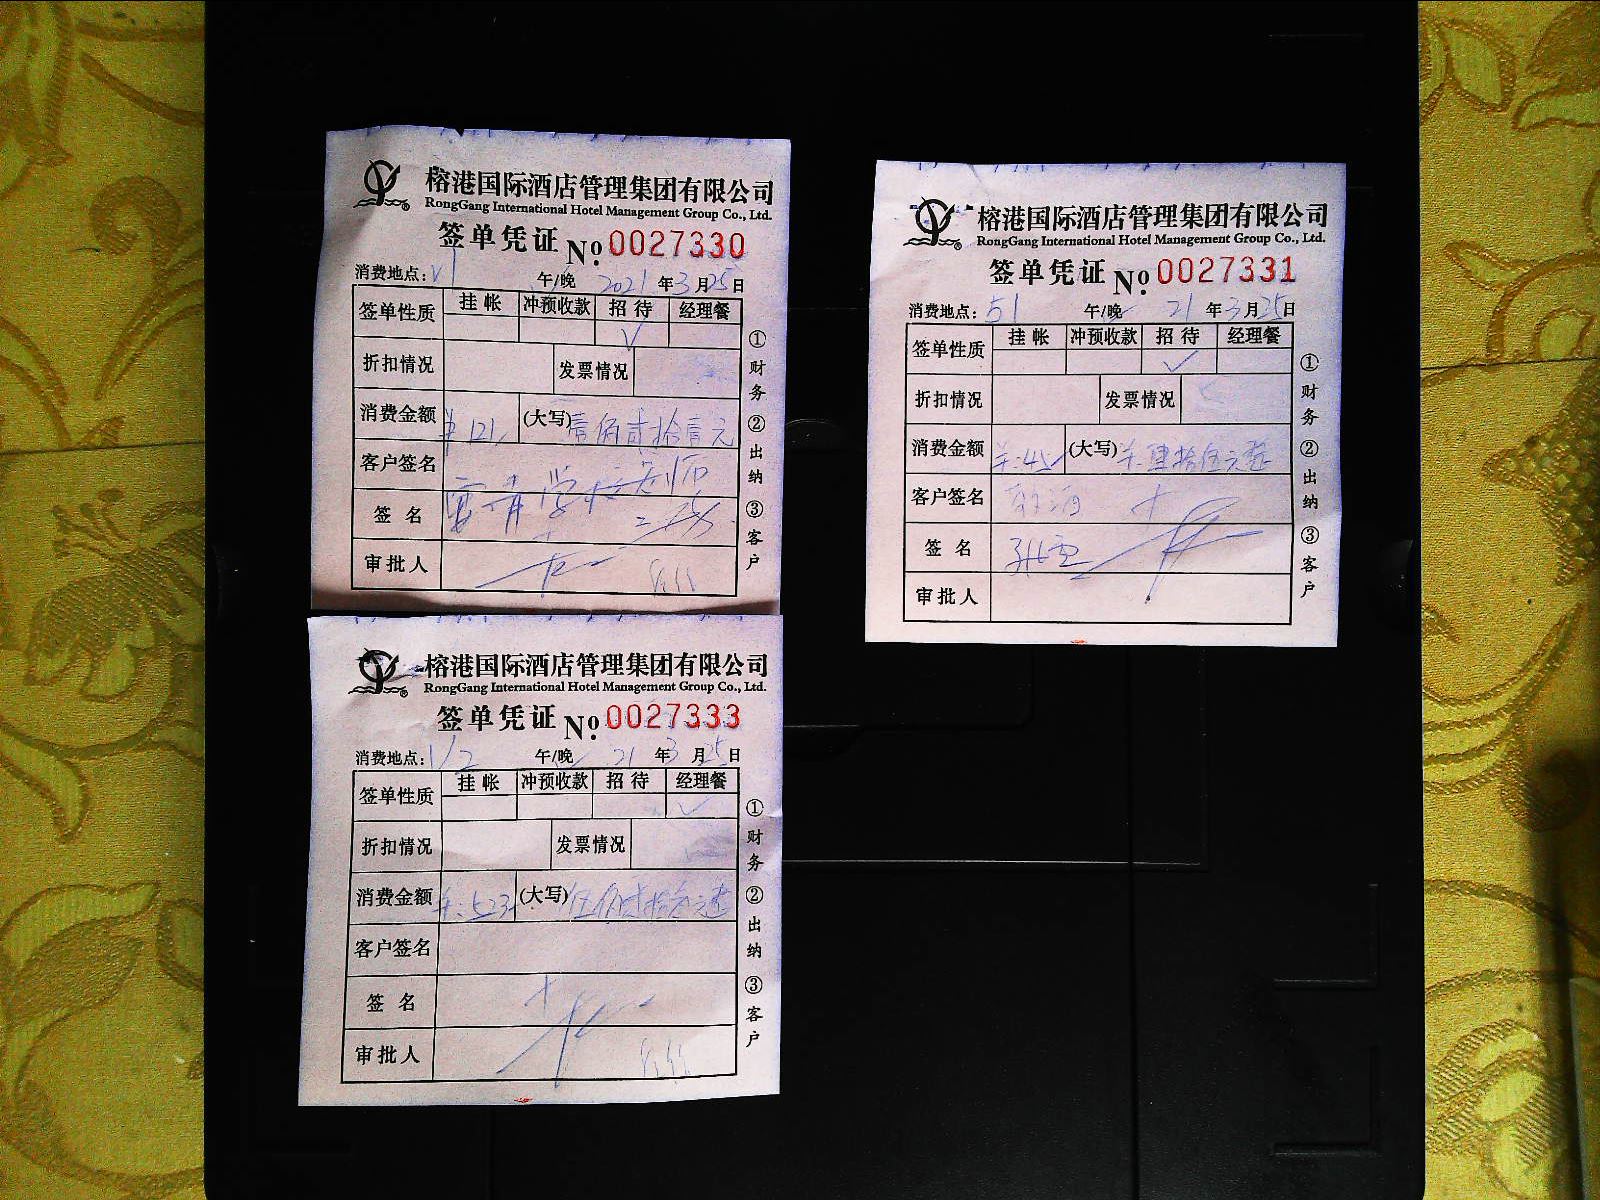 榕港国际酒店管理集团有限公司
RongGang International Hotel Management Group Co., Ltd.
签单凭证 № 0027330
消费地点: 午/晚 2021年3月25日
签单性质 挂帐 冲预收款 招待 经理餐
√
折扣情况 发票情况
消费金额 ¥121 (大写) 壹佰贰拾壹元
客户签名
签名
审批人
①财务 ②出纳 ③客户
榕港国际酒店管理集团有限公司
RongGang International Hotel Management Group Co., Ltd.
签单凭证 № 0027331
消费地点: 51 午/晚 21年3月25日
签单性质 挂帐 冲预收款 招待 经理餐
√
折扣情况 发票情况
消费金额 ¥:45 (大写) ¥:肆拾伍元整
客户签名
签名
审批人
①财务 ②出纳 ③客户
榕港国际酒店管理集团有限公司
RongGang International Hotel Management Group Co., Ltd.
签单凭证 № 0027333
消费地点: V2 午/晚 21年3月25日
签单性质 挂帐 冲预收款 招待 经理餐
√
折扣情况 发票情况
消费金额 ¥:523 (大写) 伍佰贰拾叁元整
客户签名
签名
审批人
①财务 ②出纳 ③客户